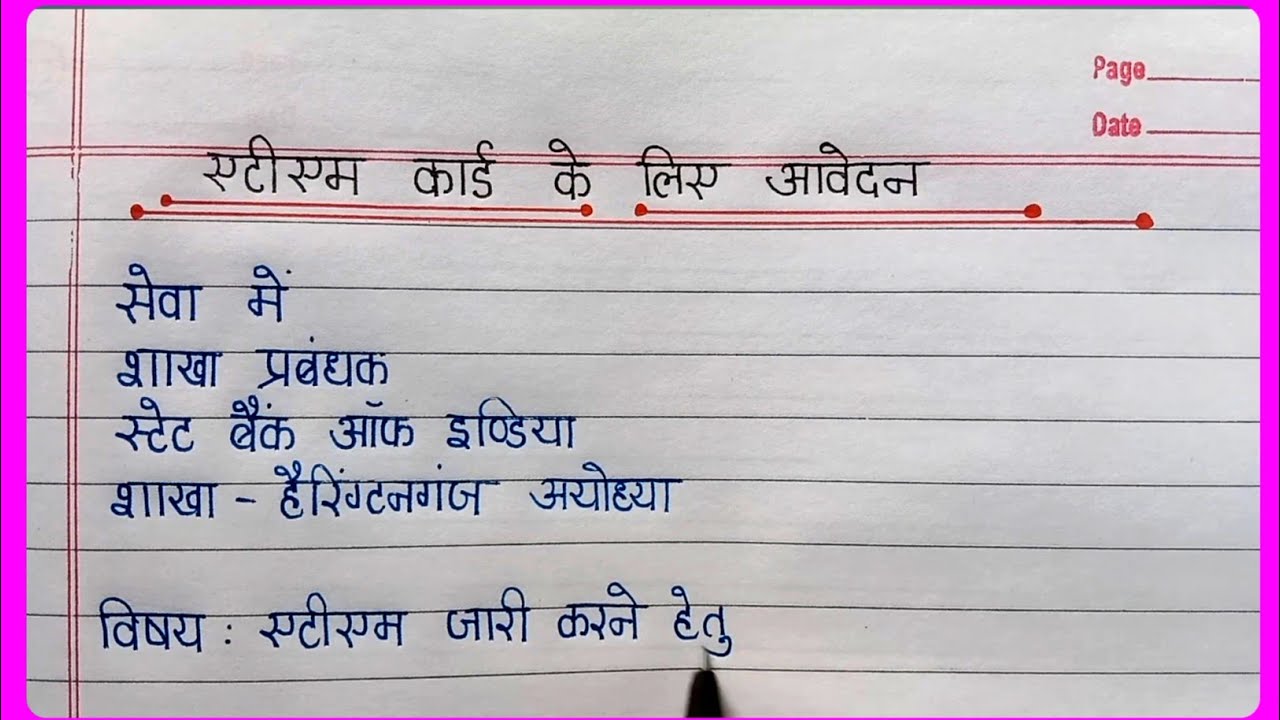 Page
Date
एटीएम कार्ड के लिए आवेदन
सेवा में
शाखा प्रबंधक
स्टेट बैंक ऑफ इण्डिया
शाखा - हैरिंग्टनगंज अयोध्या
विषय : एटीएम जारी करने हेतु